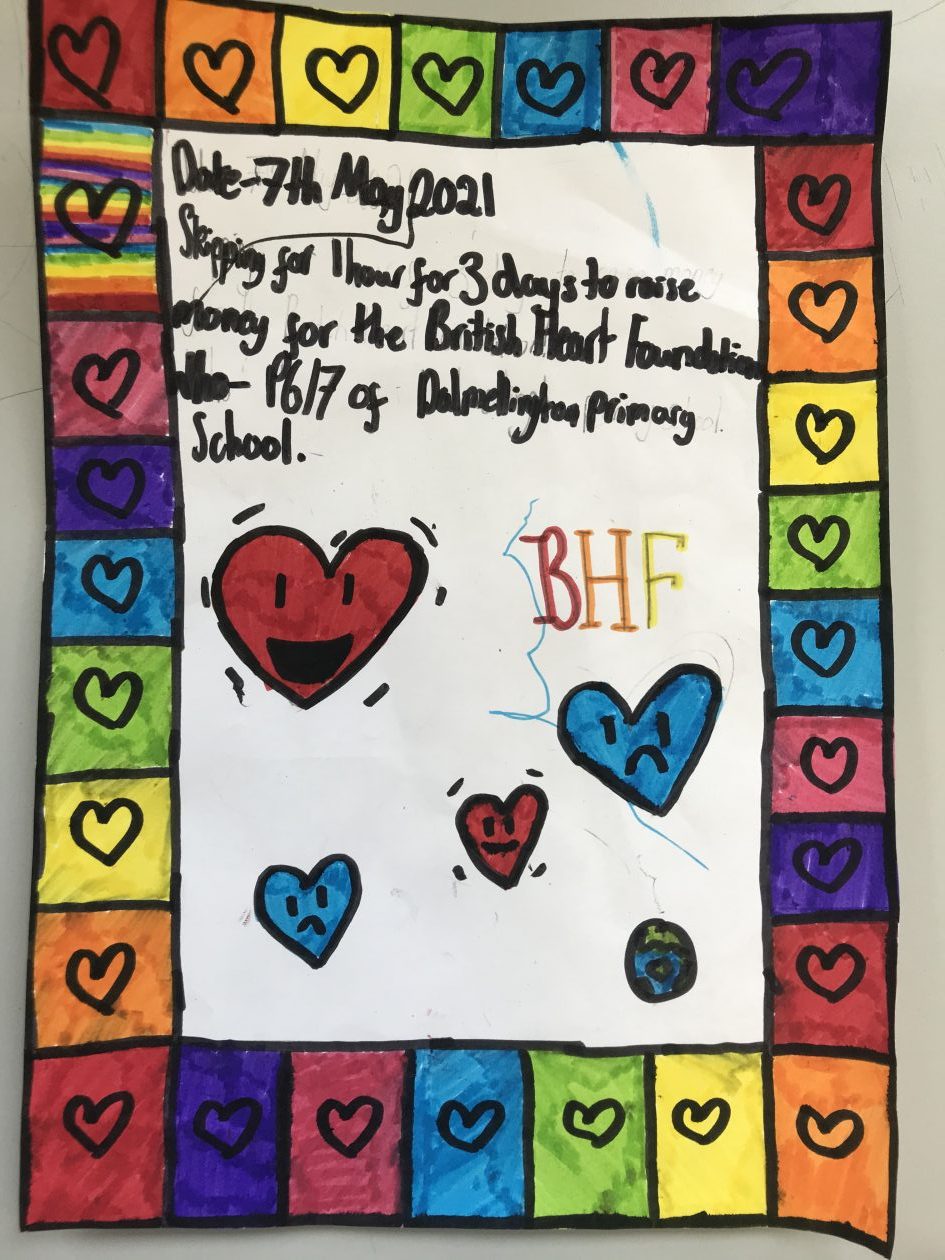 Date-7th May 2021
Skipping for 1 hour for 3 days to raise
money for the British Heart Foundation
Who- P6/7 of Dalmellington primary
School.
BHF